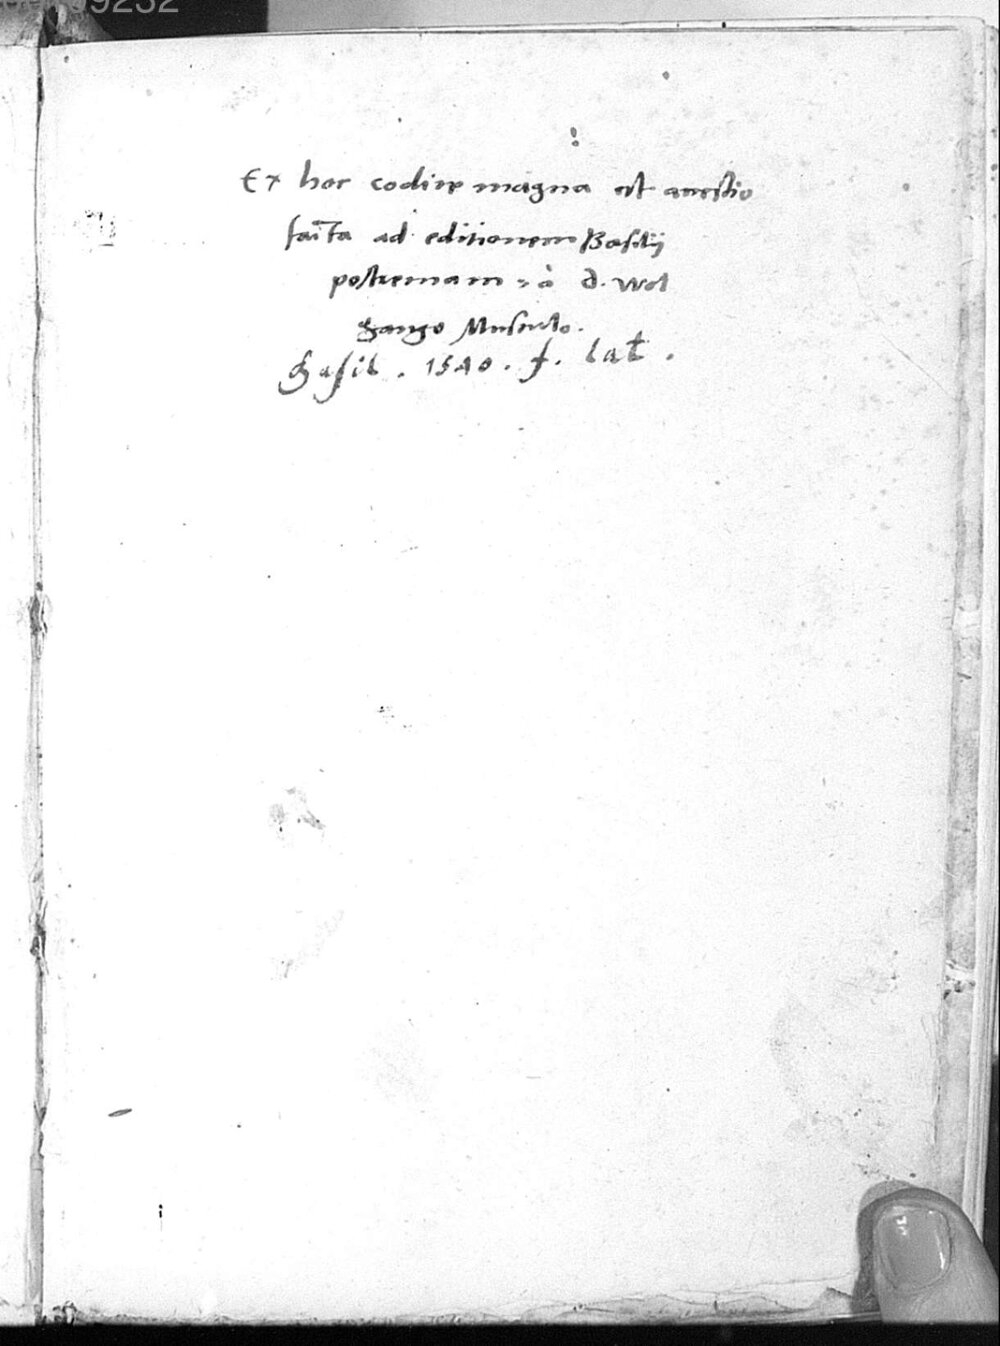 Ex hoc codice magna est accessio
facta ad editionem Basilij
postremam, à d. Wol
gango Musculo.
Basil. 1540. f. lat.